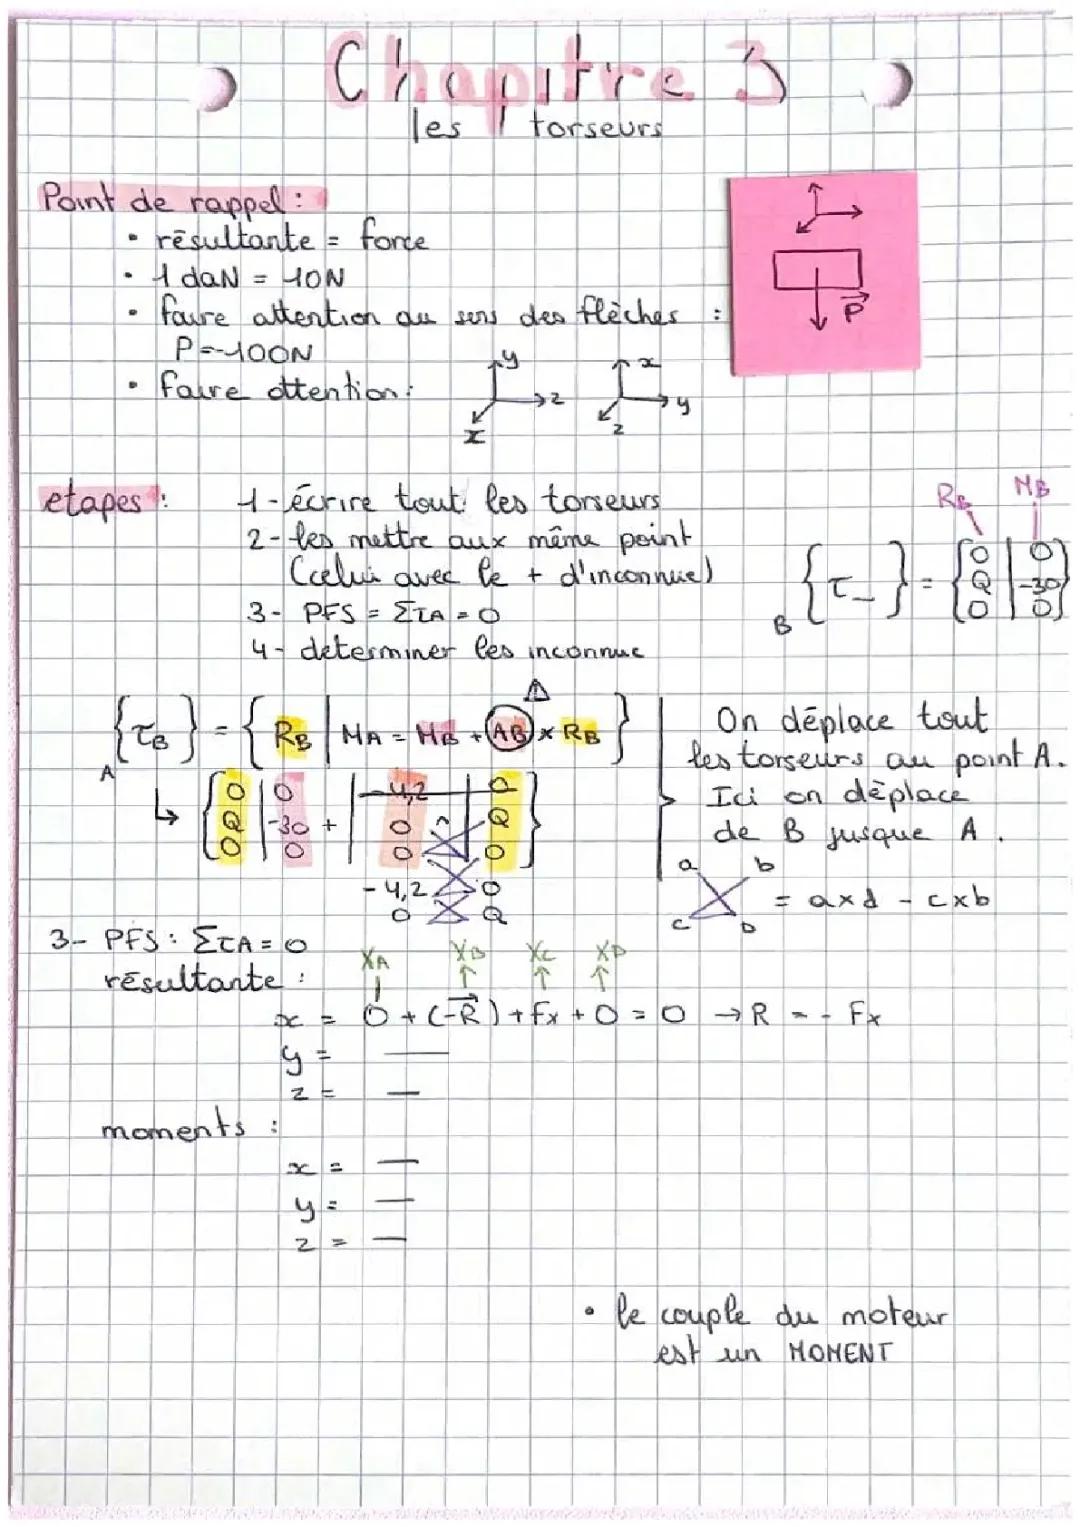 Chapitre 3
les torseurs
Point de rappel :
• résultante = force
• 1 daN = 10N
• faire attention au sens des flèches :
P=-100N
• faire attention :
y
z
x
x
y
z
P
etapes :
1- écrire tout les torseurs
2- les mettre aux même point
(celui avec le + d'inconnue)
3- PFS = ΣτA = 0
4- determiner les inconnue
RB MB
B { τ_ } = { 0 | 0
Q | -30
0 | 0 }
⚠
A { τB } = { RB | MA = MB + AB × RB }
↳ { 0 | 0 | -4,2 | 0
Q | -30 + | 0 ^ | Q
0 | 0 | 0 | 0 }
-4,2 0
0 Q
On déplace tout
les torseurs au point A.
Ici on déplace
de B jusque A.
a b
= axd - cxb
c D
3- PFS : ΣτA = 0
résultante :
XA XB XC XD
x = 0 + (-R) + Fx + 0 = 0 → R = - Fx
y = —
z = —
moments :
x = —
y = —
z = —
• le couple du moteur
est un MOMENT